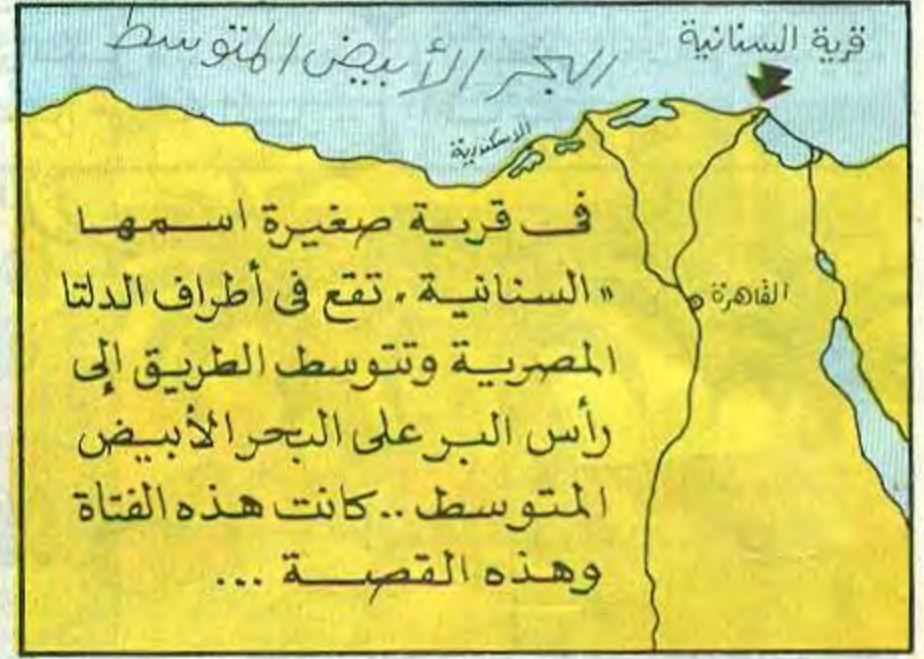 قرية السنانية
البحر الأبيض المتوسط
الاسكندرية
القاهرة
فى قرية صغيرة اسمها
"السنانية" تقع فى أطراف الدلتا
المصرية وتتوسط الطريق إلى
رأس البر على البحر الأبيض
المتوسط .. كانت هذه الفتاة
وهذه القصة ...